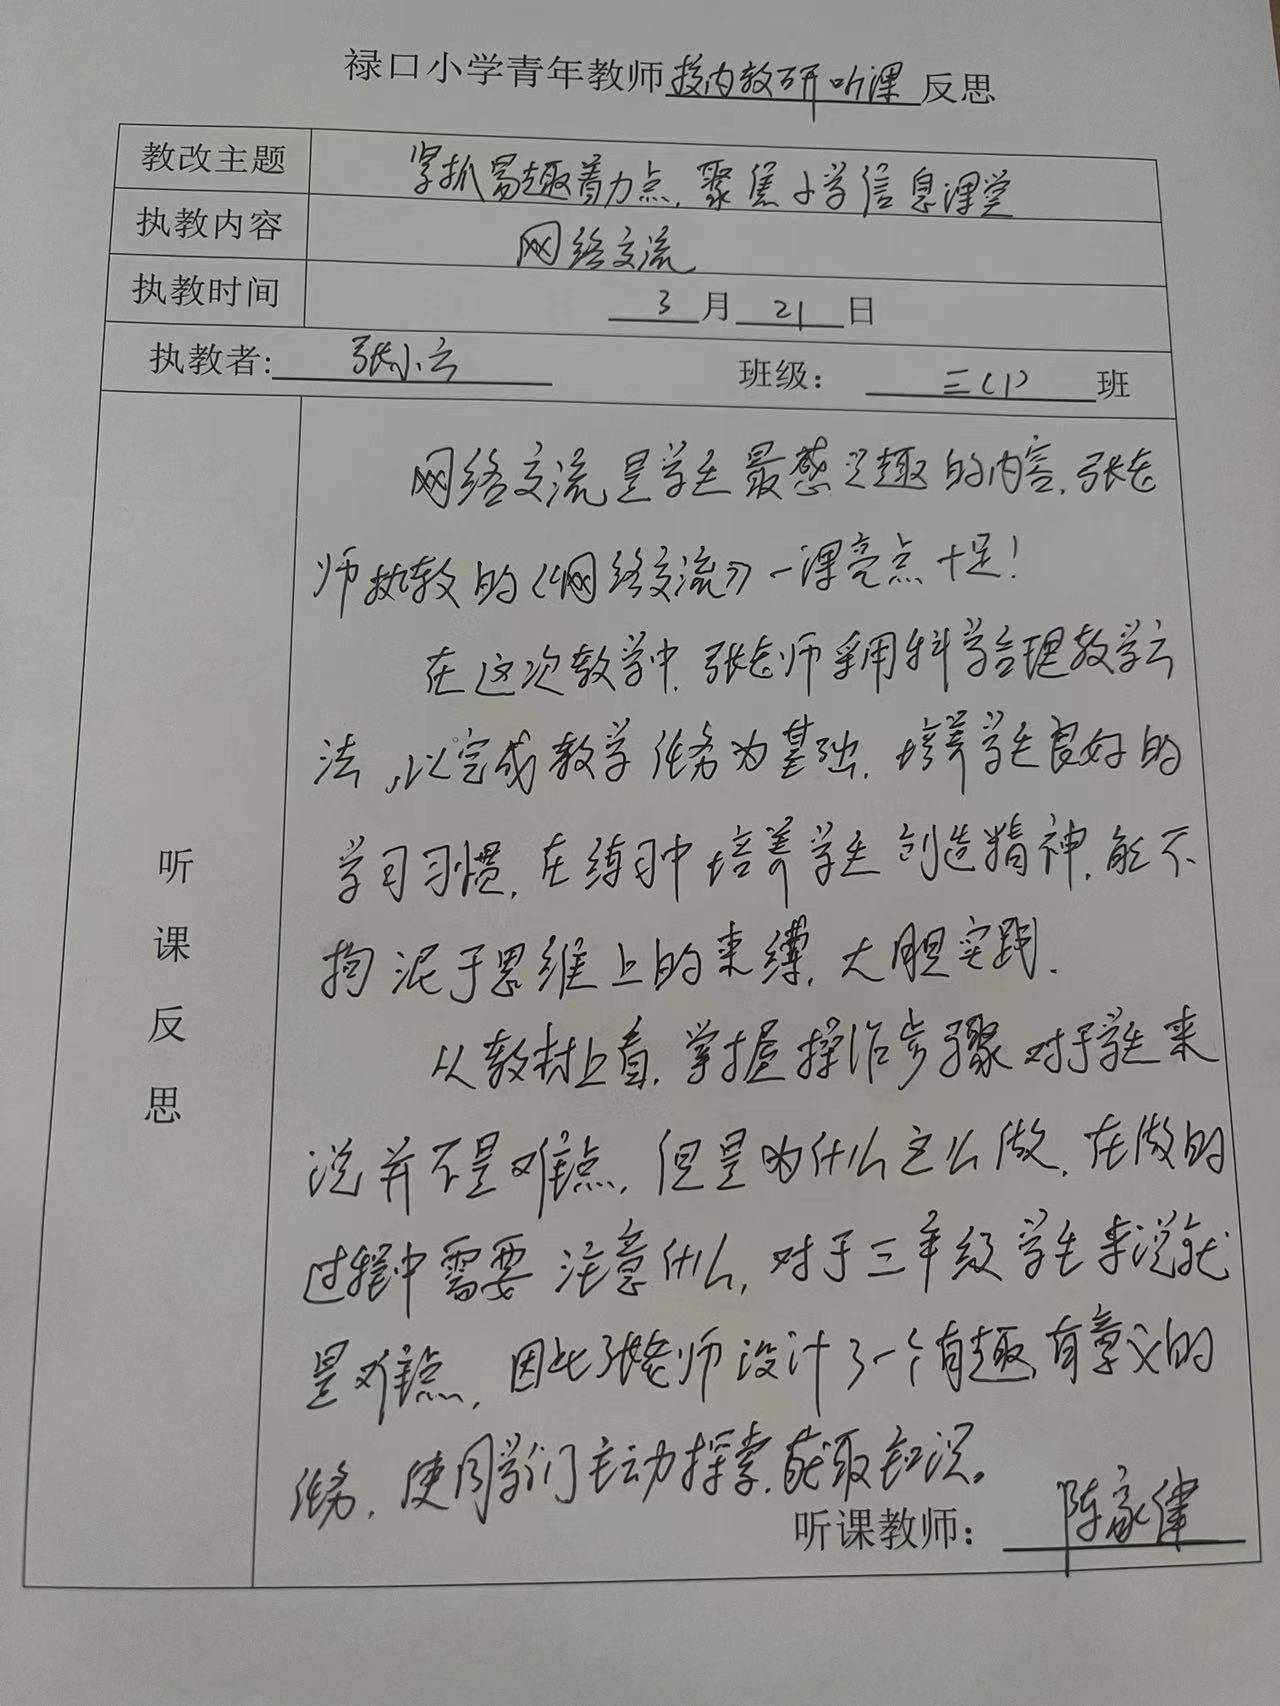 禄口小学青年教师校内教研听课反思
教改主题 紧抓易趣着力点,聚焦小学信息课堂
执教内容 网络交流
执教时间 3月21日
执教者:张小云 班级:三(1)班
听课反思
网络交流是学生最感兴趣的内容,张老
师执教的《网络交流》一课亮点十足!
在这次教学中,张老师采用科学合理教学方
法,以完成教学任务为基础,培养学生良好的
学习习惯,在练习中培养学生创造精神,能不
拘泥于思维上的束缚,大胆实践.
从教材上看,掌握操作步骤对于学生来
说并不是难点,但是为什么这么做,在做的
过程中需要注意什么,对于三年级学生来说就
是难点,因此张老师设计了一个有趣,有意义的
任务,使同学们主动探索,获取知识。
听课教师:陈家健